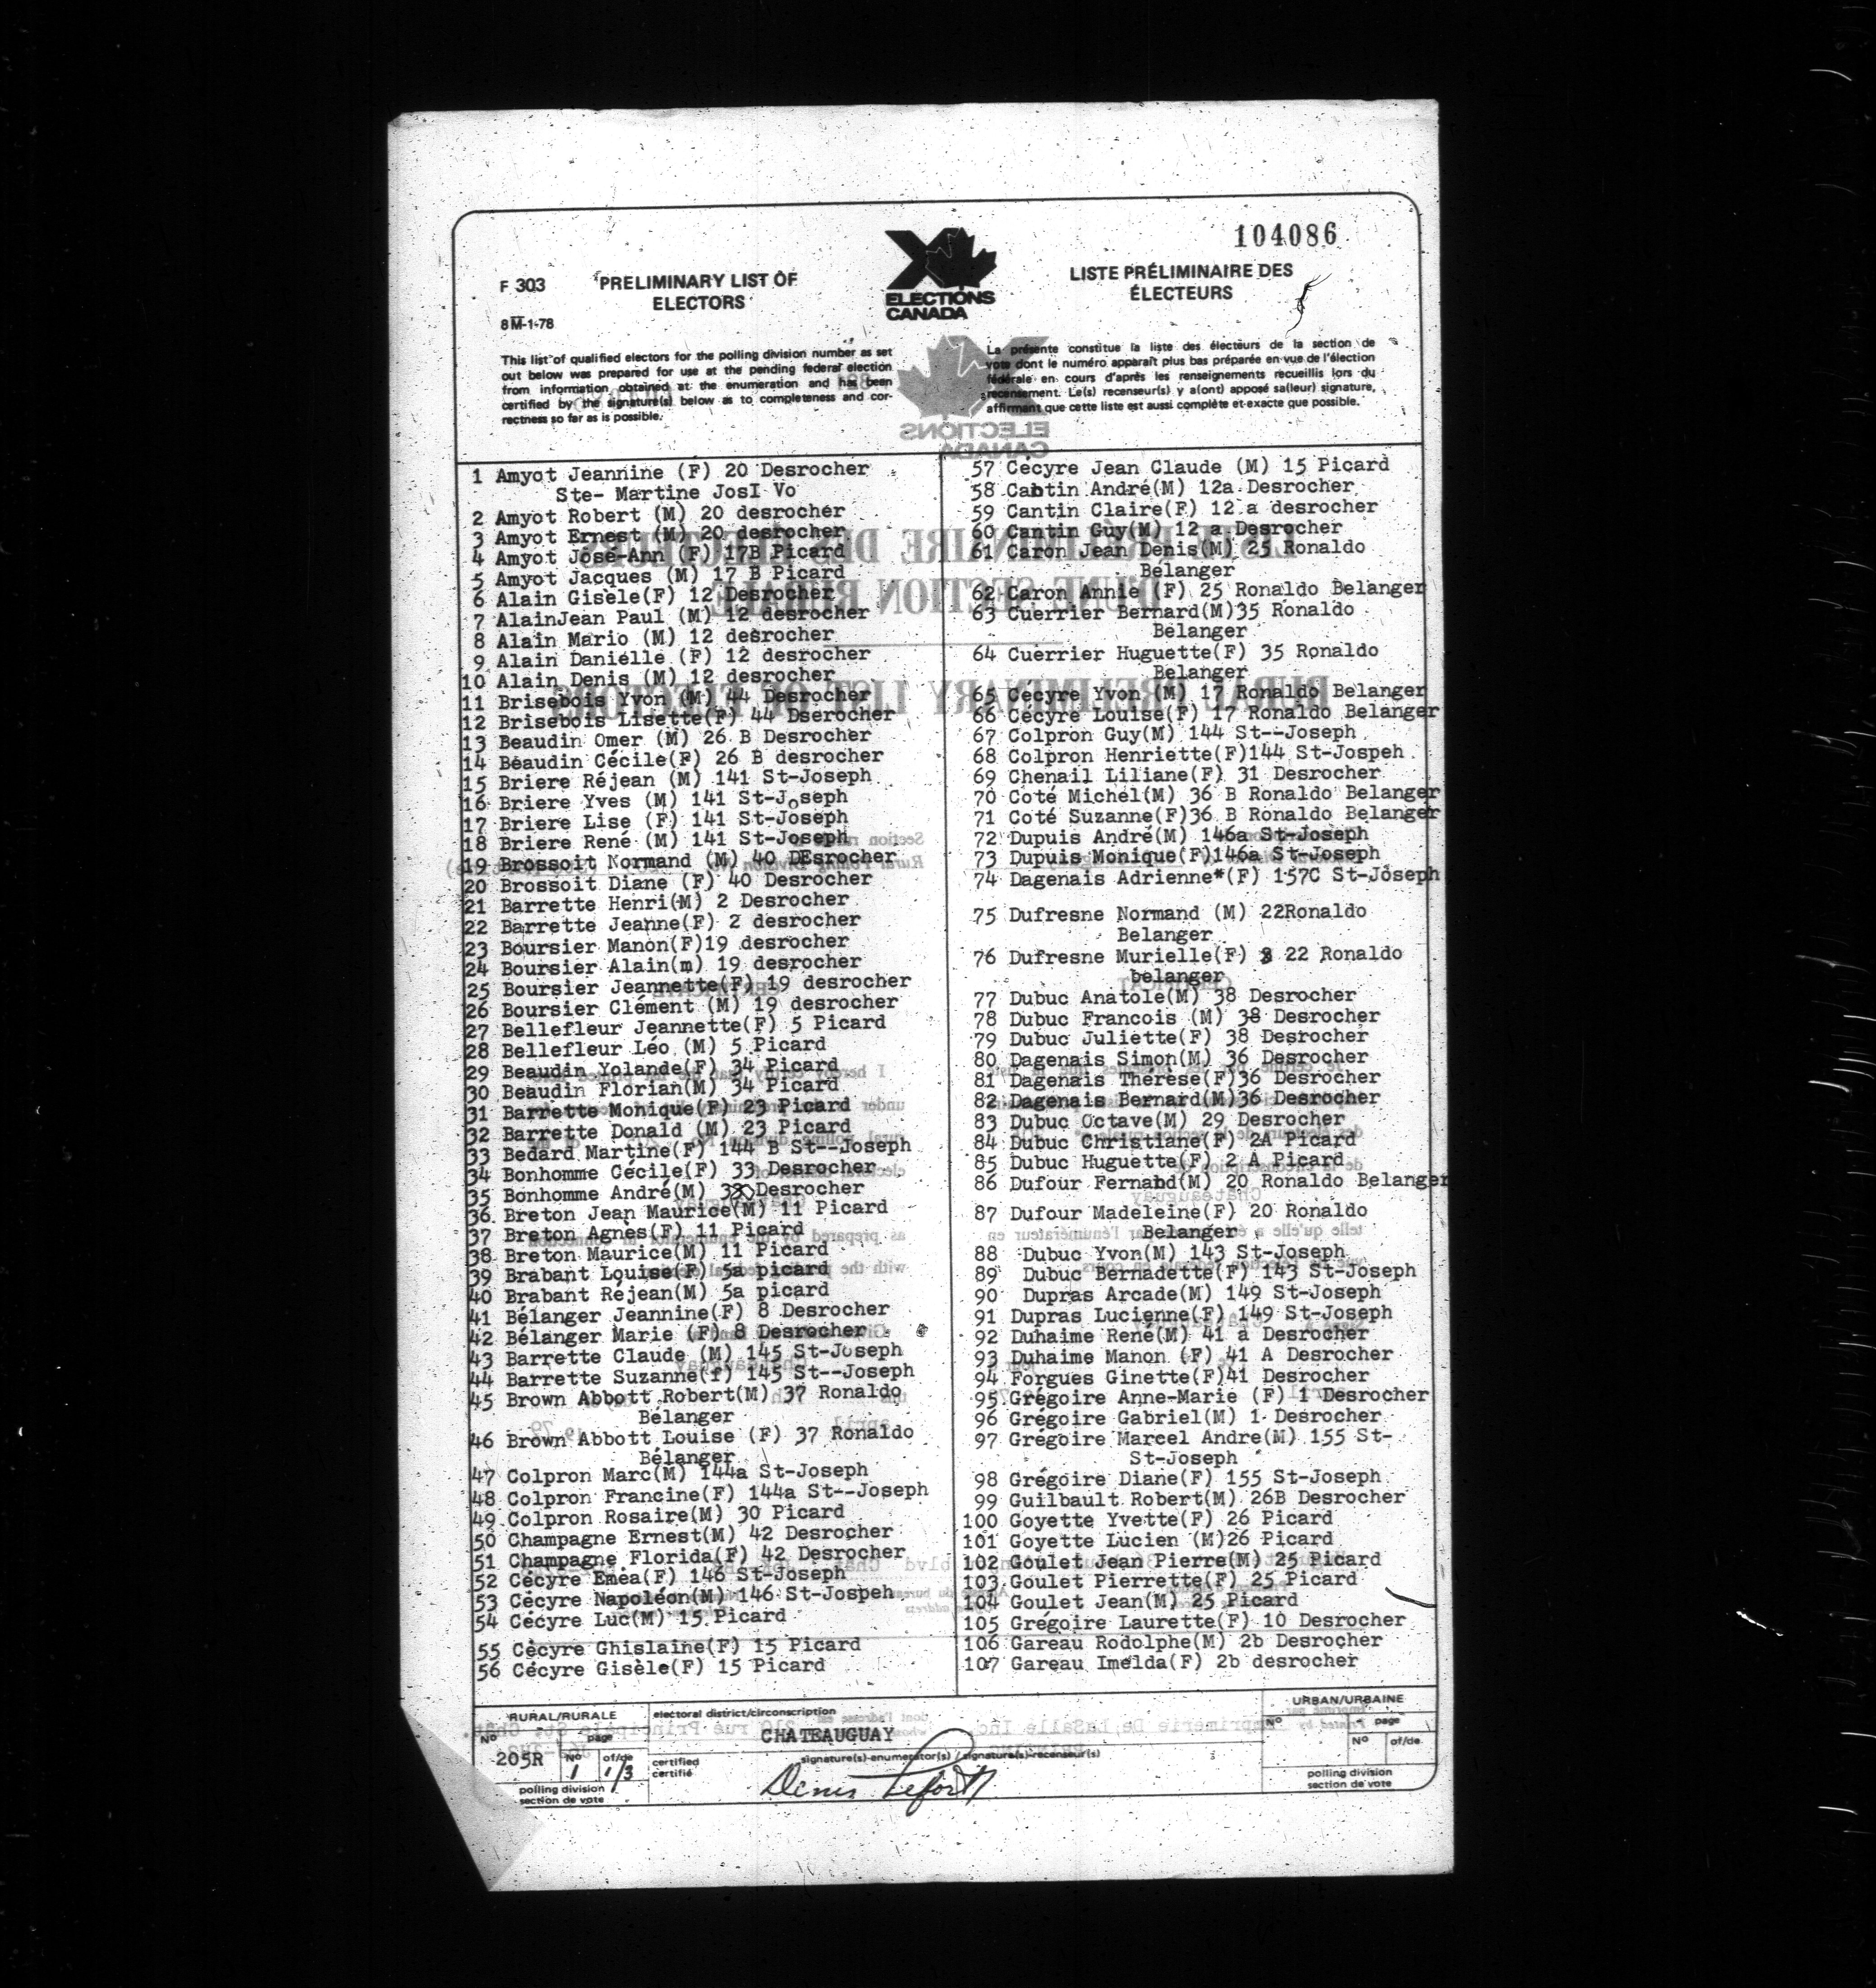 104086
F 303
PRELIMINARY LIST OF
ELECTORS
8M-1-78
ELECTIONS
CANADA
LISTE PRÉLIMINAIRE DES
ÉLECTEURS
This list of qualified electors for the polling division number as set
out below was prepared for use at the pending federal election
from information obtained at the enumeration and has been
certified by the signature(s) below as to completeness and cor-
rectness so far as is possible.
La présente constitue la liste des électeurs de la section de
vote dont le numéro apparaît plus bas préparée en vue de l'élection
fédérale en cours d'après les renseignements recueillis lors du
recensement. Le(s) recenseur(s) y a(ont) apposé sa(leur) signature,
affirmant que cette liste est aussi complète et exacte que possible.
1 Amyot Jeannine (F) 20 Desrocher
Ste- Martine JosI Vo
2 Amyot Robert (M) 20 desrocher
3 Amyot Ernest (M) 20 desrocher
4 Amyot José-Ann (F) 17B Picard
5 Amyot Jacques (M) 17 B Picard
6 Alain Gisèle(F) 12 Desrocher
7 AlainJean Paul (M) 12 desrocher
8 Alain Mario (M) 12 desrocher
9 Alain Danielle (F) 12 desrocher
10 Alain Denis (M) 12 desrocher
11 Brisebois Yvon (M) 44 Desrocher
12 Brisebois Lisette(F) 44 Dserocher
13 Beaudin Omer (M) 26 B Desrocher
14 Beaudin Cécile(F) 26 B desrocher
15 Briere Réjean (M) 141 St-Joseph
16 Briere Yves (M) 141 St-Joseph
17 Briere Lise (F) 141 St-Joseph
18 Briere René (M) 141 St-Joseph
19 Brossoit Normand (M) 40 DEsrocher
20 Brossoit Diane (F) 40 Desrocher
21 Barrette Henri(M) 2 Desrocher
22 Barrette Jeanne(F) 2 desrocher
23 Boursier Manon(F)19 desrocher
24 Boursier Alain(m) 19 desrocher
25 Boursier Jeannette(F) 19 desrocher
26 Boursier Clément (M) 19 desrocher
27 Bellefleur Jeannette(F) 5 Picard
28 Bellefleur Léo (M) 5 Picard
29 Beaudin Yolande(F) 34 Picard
30 Beaudin Florian(M) 34 Picard
31 Barrette Monique(F) 23 Picard
32 Barrette Donald (M) 23 Picard
33 Bedard Martine(F) 144 B St--Joseph
34 Bonhomme Cécile(F) 33 Desrocher
35 Bonhomme André(M) 33 Desrocher
36 Breton Jean Maurice(M) 11 Picard
37 Breton Agnès(F) 11 Picard
38 Breton Maurice(M) 11 Picard
39 Brabant Louise(F) 5a picard
40 Brabant Réjean(M) 5a picard
41 Bélanger Jeannine(F) 8 Desrocher
42 Bélanger Marie (F) 8 Desrocher
43 Barrette Claude (M) 145 St-Joseph
44 Barrette Suzanne(f) 145 St--Joseph
45 Brown Abbott Robert(M) 37 Ronaldo
Bélanger
46 Brown Abbott Louise (F) 37 Ronaldo
Bélanger
47 Colpron Marc(M) 144a St-Joseph
48 Colpron Francine(F) 144a St--Joseph
49 Colpron Rosaire(M) 30 Picard
50 Champagne Ernest(M) 42 Desrocher
51 Champagne Florida(F) 42 Desrocher
52 Cécyre Eméa(F) 146 St-Joseph
53 Cécyre Napoléon(M) 146 St-Jospeh
54 Cécyre Luc(M) 15 Picard
55 Cècyre Ghislaine(F) 15 Picard
56 Cécyre Gisèle(F) 15 Picard
57 Cécyre Jean Claude (M) 15 Picard
58 Cantin André(M) 12a Desrocher
59 Cantin Claire(F) 12 a desrocher
60 Cantin Guy(M) 12 a Desrocher
61 Caron Jean Denis(M) 25 Ronaldo
Bélanger
62 Caron Annie (F) 25 Ronaldo Belanger
63 Cuerrier Bernard(M)35 Ronaldo
Bélanger
64 Cuerrier Huguette(F) 35 Ronaldo
Belanger
65 Cécyre Yvon (M) 17 Ronaldo Belanger
66 Cécyre Louise(F) 17 Ronaldo Belanger
67 Colpron Guy(M) 144 St--Joseph
68 Colpron Henriette(F)144 St-Jospeh
69 Chenail Liliane(F) 31 Desrocher
70 Coté Michel(M) 36 B Ronaldo Belanger
71 Coté Suzanne(F)36 B Ronaldo Belanger
72 Dupuis André(M) 146a St-Joseph
73 Dupuis Monique(F)146a St-Joseph
74 Dagenais Adrienne*(F) 157C St-Joseph
75 Dufresne Normand (M) 22Ronaldo
Belanger
76 Dufresne Murielle(F) 22 Ronaldo
belanger
77 Dubuc Anatole(M) 38 Desrocher
78 Dubuc Francois (M) 38 Desrocher
79 Dubuc Juliette(F) 38 Desrocher
80 Dagenais Simon(M) 36 Desrocher
81 Dagenais Thérèse(F)36 Desrocher
82 Dagenais Bernard(M)36 Desrocher
83 Dubuc Octave(M) 29 Desrocher
84 Dubuc Christiane(F) 2A Picard
85 Dubuc Huguette(F) 2 A Picard
86 Dufour Fernand(M) 20 Ronaldo Belanger
87 Dufour Madeleine(F) 20 Ronaldo
Belanger
88 Dubuc Yvon(M) 143 St-Joseph
89 Dubuc Bernadette(F) 143 St-Joseph
90 Dupras Arcade(M) 149 St-Joseph
91 Dupras Lucienne(F) 149 St-Joseph
92 Duhaime René(M) 41 a Desrocher
93 Duhaime Manon (F) 41 A Desrocher
94 Forgues Ginette(F)41 Desrocher
95 Grégoire Anne-Marie (F) 1 Desrocher
96 Grégoire Gabriel(M) 1 Desrocher
97 Grégoire Marcel Andre(M) 155 St-
St-Joseph
98 Grégoire Diane(F) 155 St-Joseph
99 Guilbault Robert(M) 26B Desrocher
100 Goyette Yvette(F) 26 Picard
101 Goyette Lucien (M)26 Picard
102 Goulet Jean Pierre(M) 25 Picard
103 Goulet Pierrette(F) 25 Picard
104 Goulet Jean(M) 25 Picard
105 Grégoire Laurette(F) 10 Desrocher
106 Gareau Rodolphe(M) 2b Desrocher
107 Gareau Imelda(F) 2b desrocher
RURAL/RURALE
No
205R
page
No
1
of/de
1/3
polling division
section de vote
electoral district/circonscription
CHATEAUGUAY
certified
certifié
signature(s)-enumerator(s) / signature(s)-recenseur(s)
Denis Lefort
URBAN/URBAINE
No
page
No
of/de
polling division
section de vote